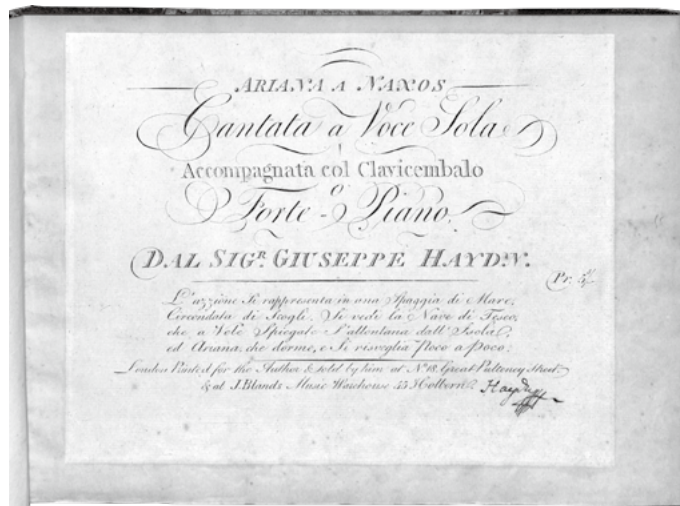 ARIANA A NAXOS
Cantata a Voce Sola
Accompagnata col Clavicembalo
o
Forte-Piano.
DAL SIGR. GIUSEPPE HAYDN.
Pr:
L'azzione Si rappresenta in una Spaggia di Mare,
Circondata di Scogli, Si vede la Nave di Teseo,
che a Vele Spiegate S'allontana dall'Isola,
ed Ariana, che dorme, e Si risveglia Poco a Poco;
London Printed for the Author & sold by him at No. 18, Great Pulteney Street,
& at J. Blands Music Warehouse 45 Holborn
Haydn